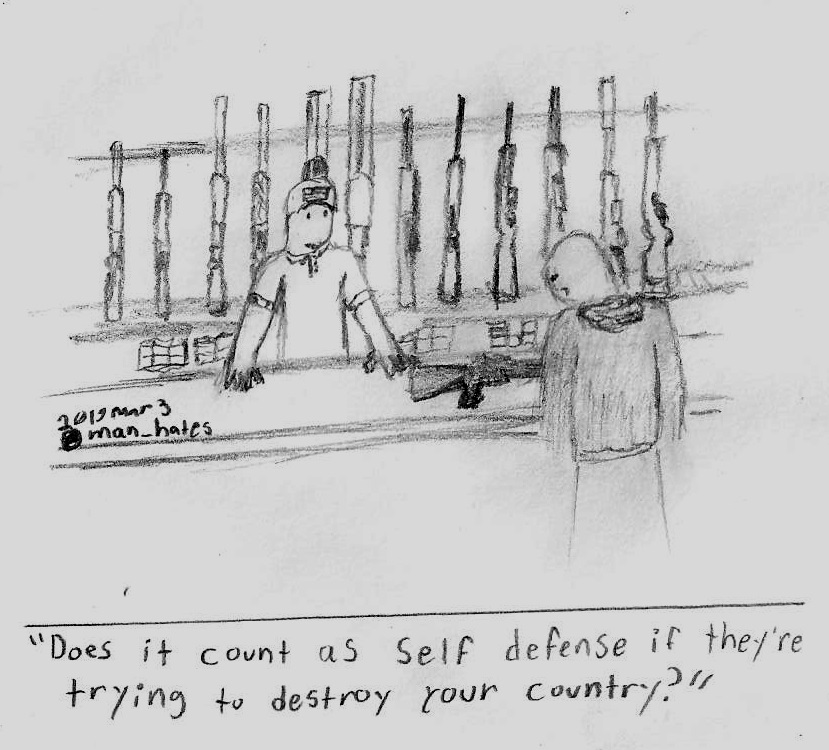 2019 mar 3
@man_hates
"Does it count as self defense if they're
trying to destroy your country?"